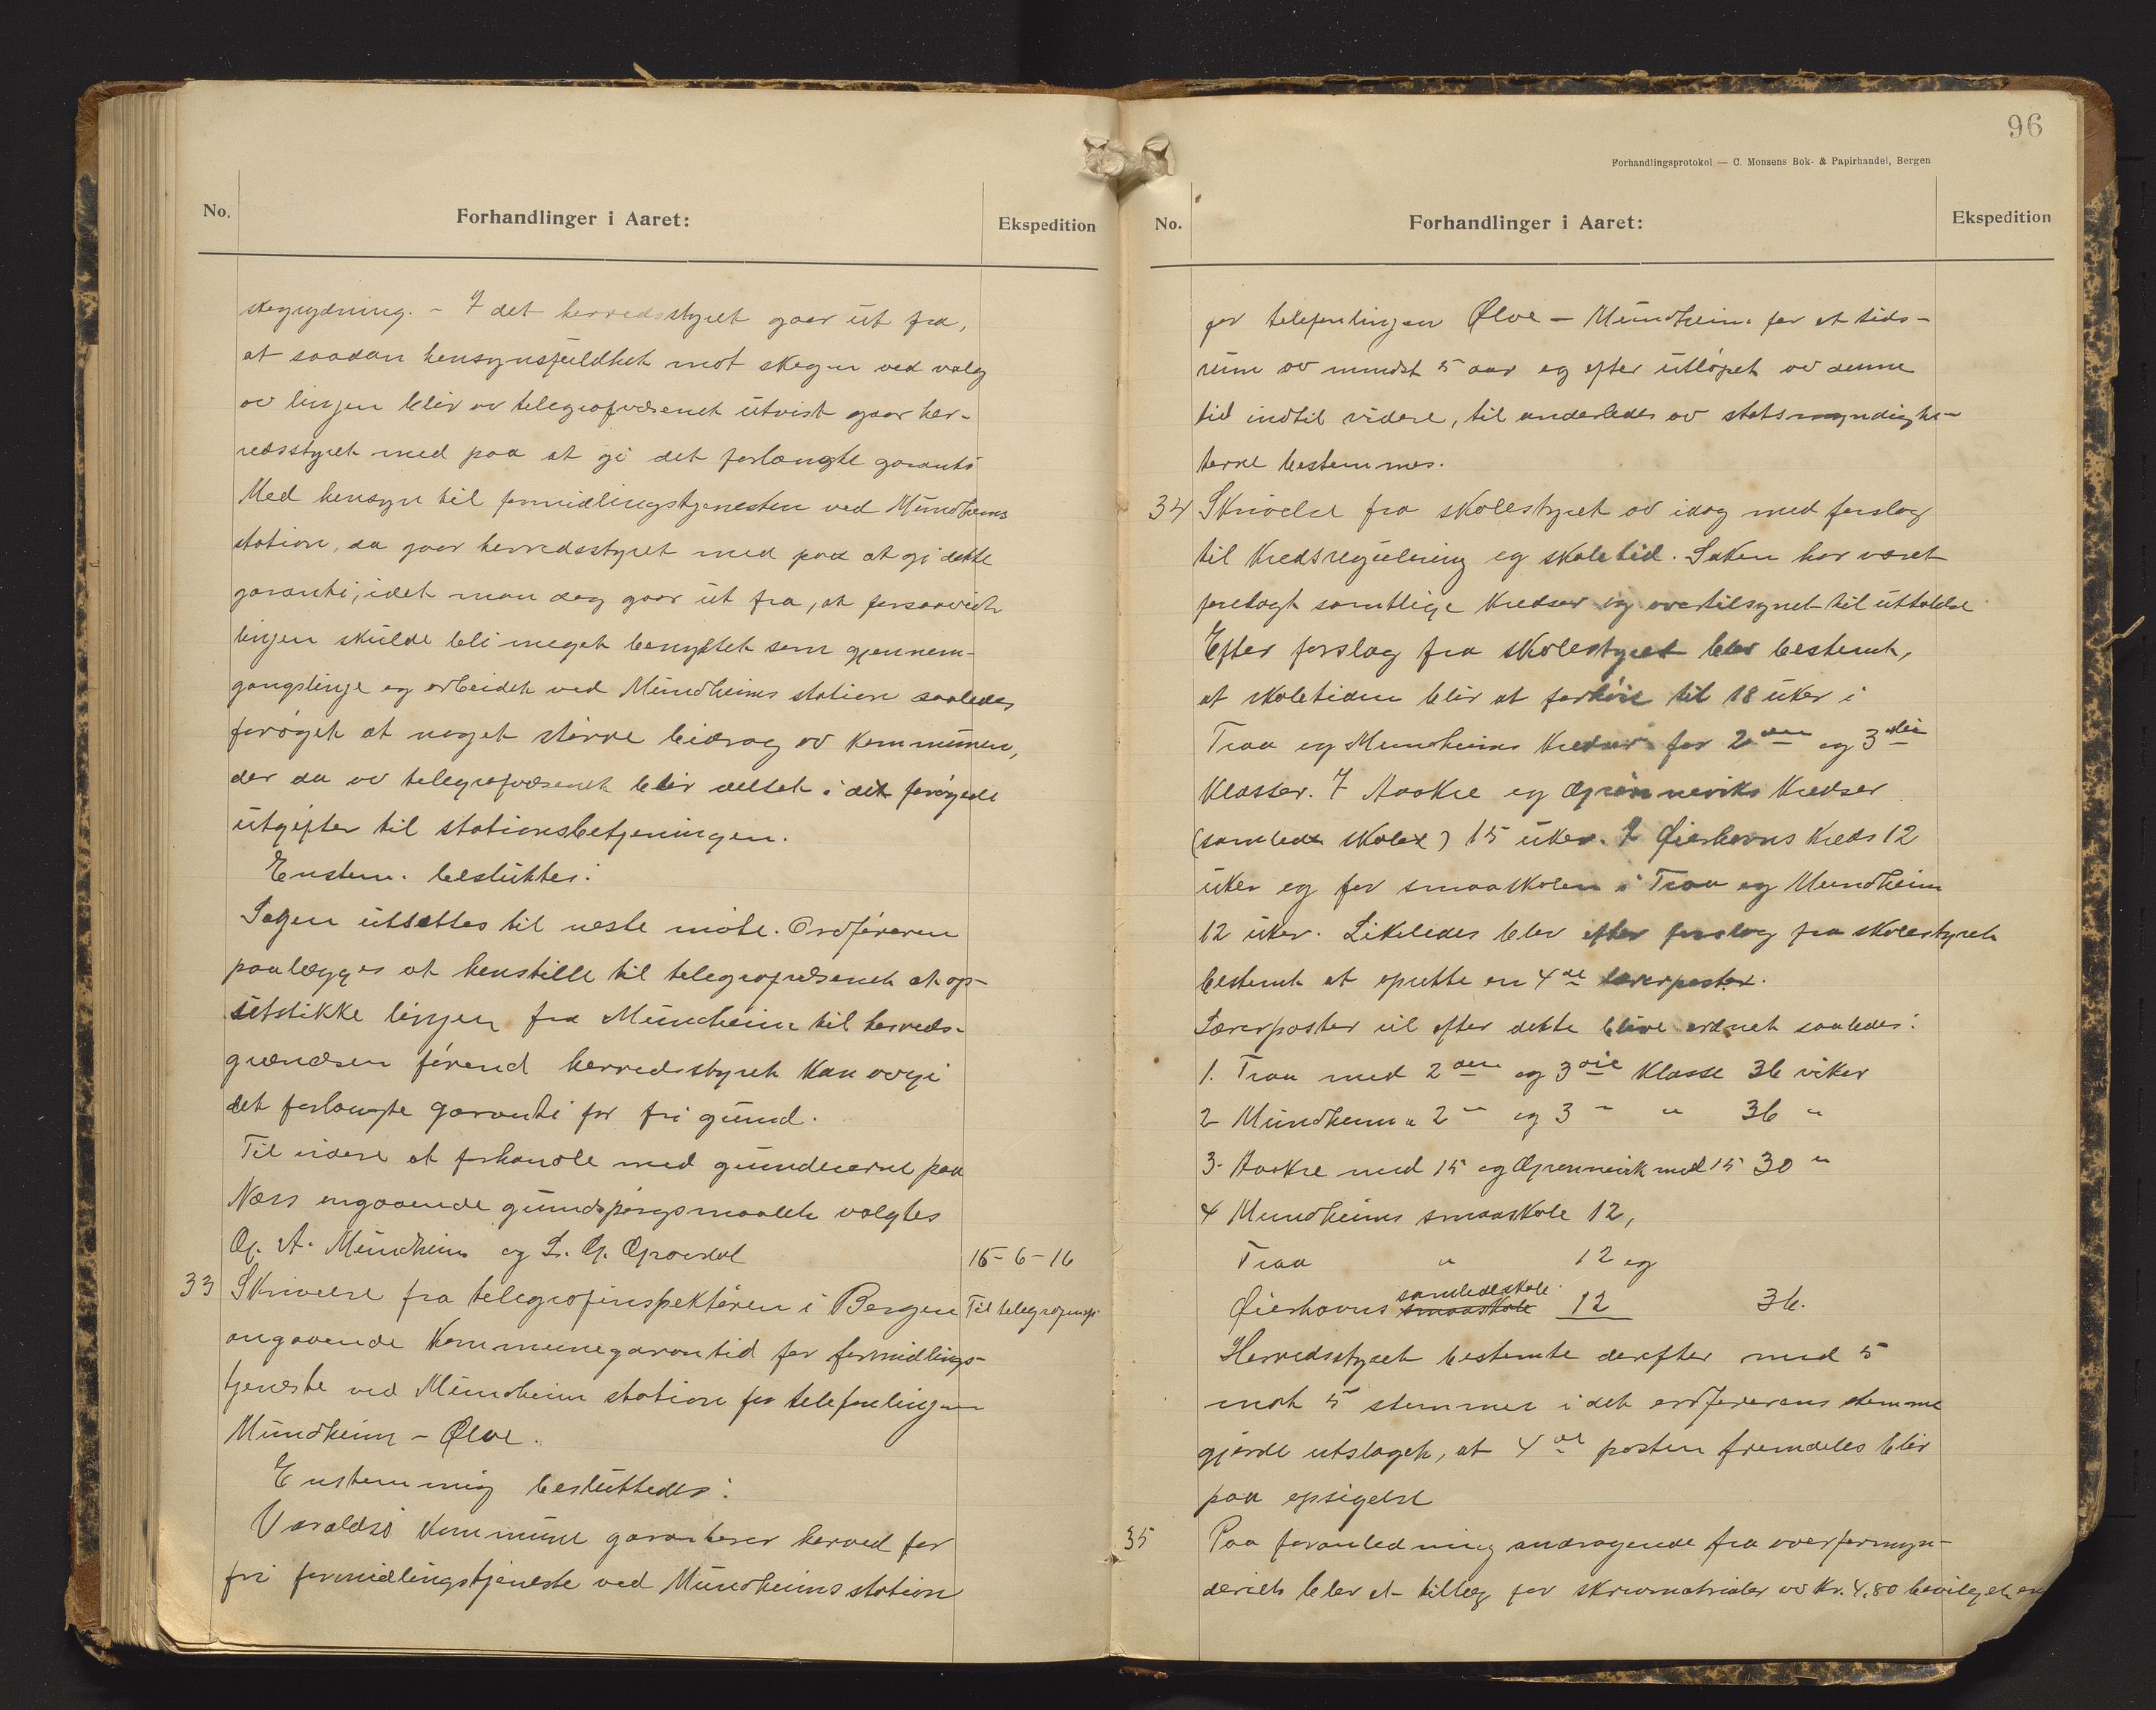 No.
Forhandlinger i Aaret:
Ekspedition
skogrydning. - I det herredsstyret gaar ut fra,
at saadan hensynsfuldhet mot skogen ved valg
av linjen blir av telegrafvæsenet utvist gaar her-
redsstyret med paa at gi det forlangte garanti
Med hensyn til formidlingstjenesten ved Mundheims
station, da gaar herredsstyret med paa at gi dette
garanti, idet man dog gaar ut fra, at forsaavidt
linjen skulde bli meget benyttet som gjennem-
gangslinje og arbeidet ved Mundheims station saaledes
forøget at noget større bidrag av kommunen,
der da av telegrafvæsenet blir deltat i det forøgede
utgifter til stationsbetjeningen.
Enstem. besluttes:
Sagen utsættes til neste møte. Ordføreren
paalægges at henstille til telegrafvæsenet at op-
utstikke linjen fra Mundheim til herreds-
grændsen førend herredsstyret kan avgi
det forlangte garanti for fri grund.
Til videre at forhandle med grundeierne paa
Næss angaaende grundspørgsmaalet valgtes
O. A. Mundheim og L. G.
15-6-16
33 Skrivelse fra telegrafinspektøren i Bergen
Til telegrafinsp.
angaaende kommunegarantid for formidlings-
tjeneste ved Mundheim station for telefonlinjen
Mundheim - Ølve.
Enstemmig besluttedes:
Varaldsø kommune garanterer herved for
fri formidlingstjeneste ved Mundheims station
96
Forhandlingsprotokol — C. Monsens Bok- & Papirhandel, Bergen
No.
Forhandlinger i Aaret:
Ekspedition
for telefonlinjen Ølve - Mundheim for et tids-
rum av mindst 5 aar og efter utløpet av denne
tid indtil videre, til anderledes av statsmyndighe-
terne bestemmes.
34 Skrivelse fra skolestyret av idag med forslag
til kredsregulering og skoletid. Saken har været
forelagt samtlige kredser og overtilsynet til uttalelse
Efter forslag fra skolestyret blev bestemt,
at skoletiden blir at forhøie til 18 uker i
Traa og Mundheims kredser for 2den og 3die
klasser. I Aakre og Grønneviks kredser
(samlede skoler) 15 uker. I Øierhavns kreds 12
uker og for smaaskolen i Traa og Mundheim
12 uker. Likeledes blev efter forslag fra skolestyret
bestemt at oprette en 4de lærerpost.
Lærerposter vil efter dette blive ordnet saaledes:
1. Traa med 2den og 3die klasse 36 uker
2 Mundheim " 2 - og 3 - " 36 "
3. Aakre med 15 og Grønnevik med 15 30 "
4 Mundheims smaaskole 12,
Traa " 12 og
samledeskole
Øierhavns smaaskole 12 36.
Herredsstyret bestemte derefter med 5
mot 5 stemmer i det ordførerens stemme
gjorde utslaget, at 4de posten fremdeles blir
paa opsigelse
35 Paa foranledning andragende fra overformyn-
deriet blev et tillæg for skrivmatrialer av Kr. 4,80 bevilget